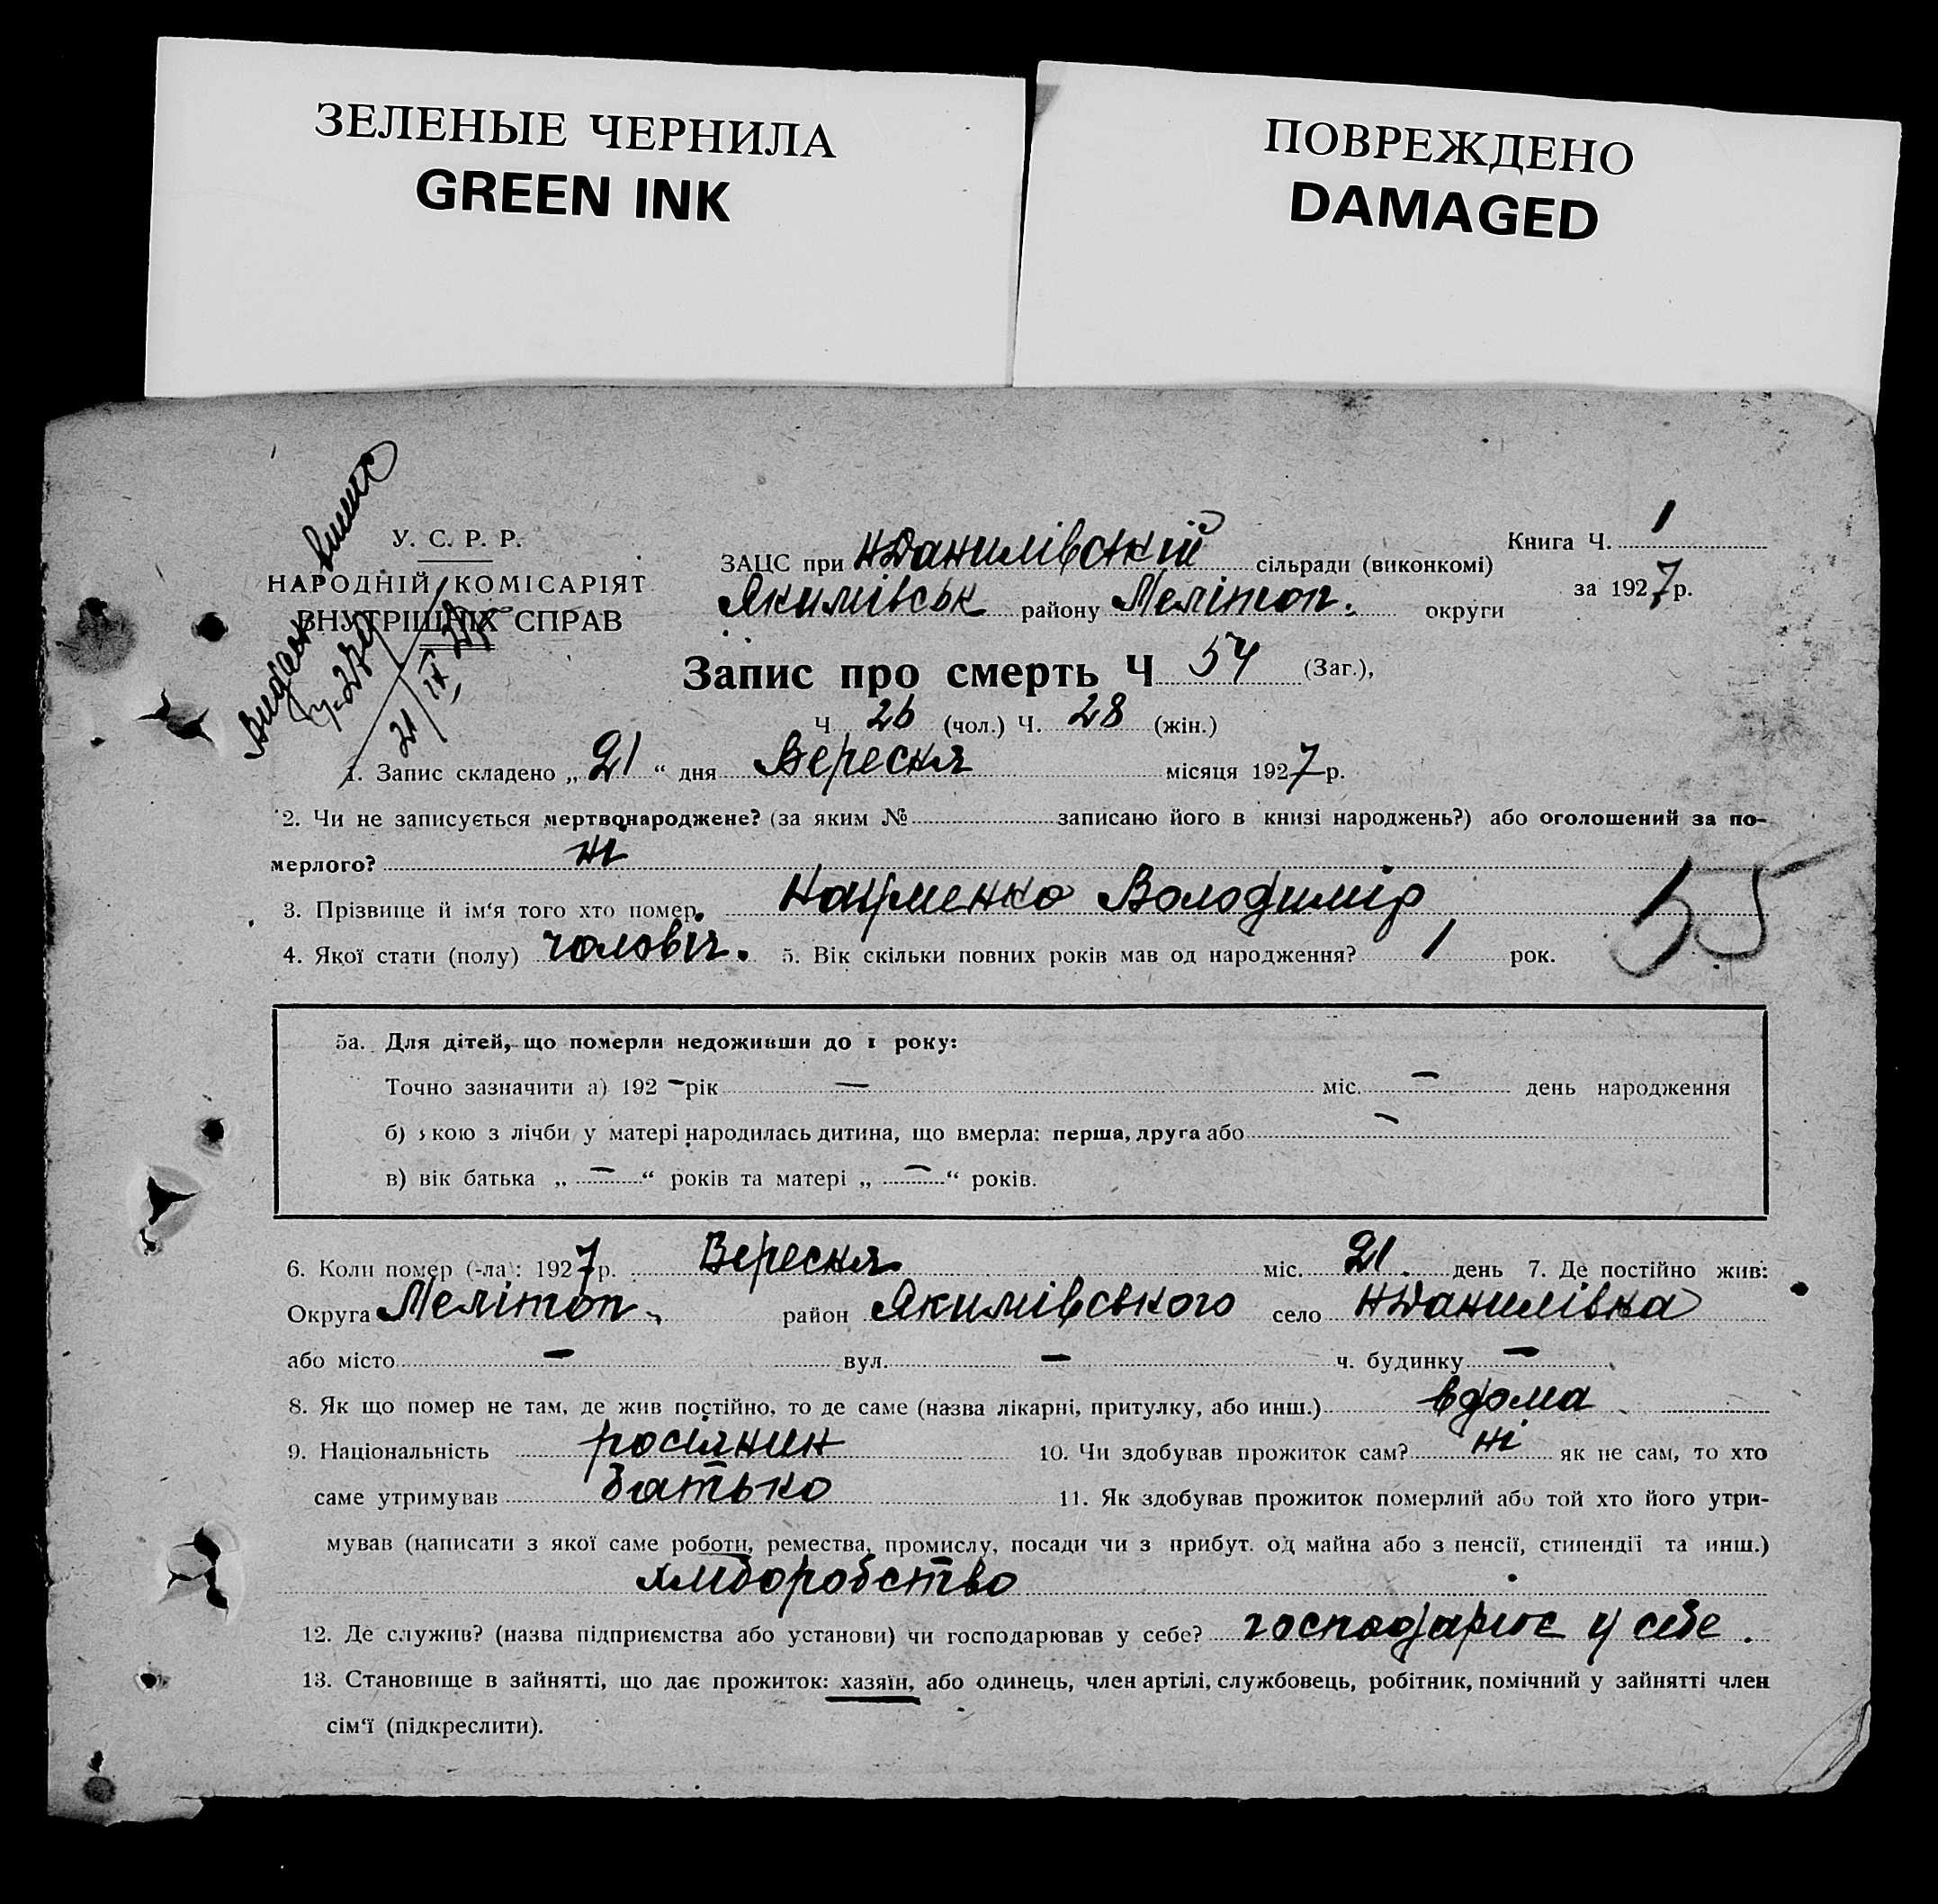 ЗЕЛЕНЫЕ ЧЕРНИЛА
GREEN INK
ПОВРЕЖДЕНО
DAMAGED
У. С. Р. Р.
НАРОДНІЙ КОМІСАРІЯТ
ВНУТРІШНІХ СПРАВ
Видан
21/IX
ЗАЦС при НДанилівській сільради (виконкомі)
Якимівськ району Мелітоп. округи
Книга Ч. 1
за 1927 р.
Запис про смерть Ч 54 (Заг.),
Ч 26 (чол.) Ч. 28 (жін.)
1. Запис складено „21“ дня Вересня місяця 1927 р.
2. Чи не записується мертвонароджене? (за яким № записано його в книзі народжень?) або оголошений за по-
мерлого? ні
3. Прізвище й ім‘я того хто помер. Науменко Володимір
55
4. Якої стати (полу) чоловіч. 5. Вік скільки повних років мав од народження? 1 рок.
5а. Для дітей, що померли недоживши до 1 року:
Точно зазначити а) 192 – рік — міс. – день народження
б) якою з лічби у матері народилась дитина, що вмерла: перша, друга або –
в) вік батька „–“ років та матері „–“ років.
6. Коли помер (-ла): 1927 р. Вересня міс. 21. день 7. Де постійно жив:
Округа Мелітоп. район Якимівського село НДанилівка
або місто – вул. – ч. будинку –
8. Як що помер не там, де жив постійно, то де саме (назва лікарні, притулку, або инш.) вдома
9. Національність росіянин 10. Чи здобував прожиток сам? ні як не сам, то хто
саме утримував батько 11. Як здобував прожиток померлий або той хто його утри-
мував (написати з якої саме роботи, ремества, промислу, посади чи з прибут. од майна або з пенсії, стипендії та инш.)
хліборобство
12. Де служив? (назва підприємства або установи) чи господарював у себе? господарює у себе.
13. Становище в зайнятті, що дає прожиток: хазяїн, або одинець, член артілі, службовець, робітник, помічний у зайнятті член
сім‘ї (підкреслити).